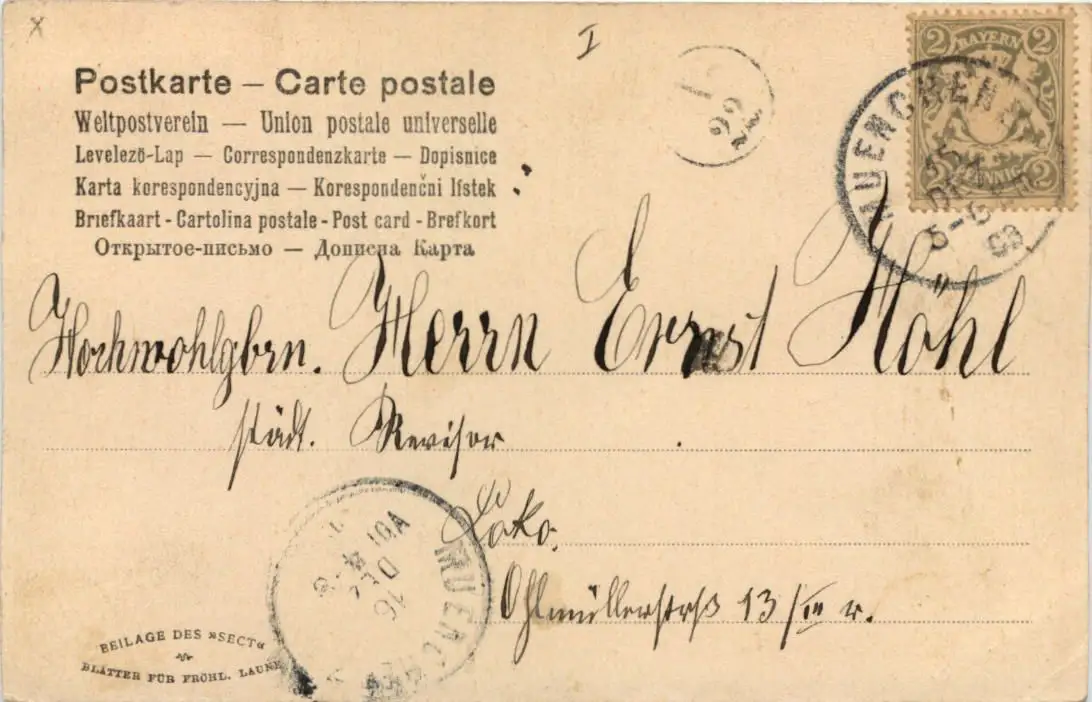 x
I
Postkarte – Carte postale
Weltpostverein — Union postale universelle
Levelező-Lap — Correspondenzkarte — Dopisnice
Karta korespondencyjna — Korespondenčni lístek
Briefkaart - Cartolina postale - Post card - Brefkort
Открытое-письмо — Дописна Карта
22
2 BAYERN 2
2 PFENNIG 2
MUENCHEN
DEZ
5-6
03
Hochwohlgbrn. Herrn Ernst Höhl
städt. Revisor
Loko.
Ohlmüllerstrß 13/III r.
MUENCHEN
16
DEZ
VIII
BEILAGE DES »SECT«
BLÄTTER FÜR FRÖHL. LAUNE